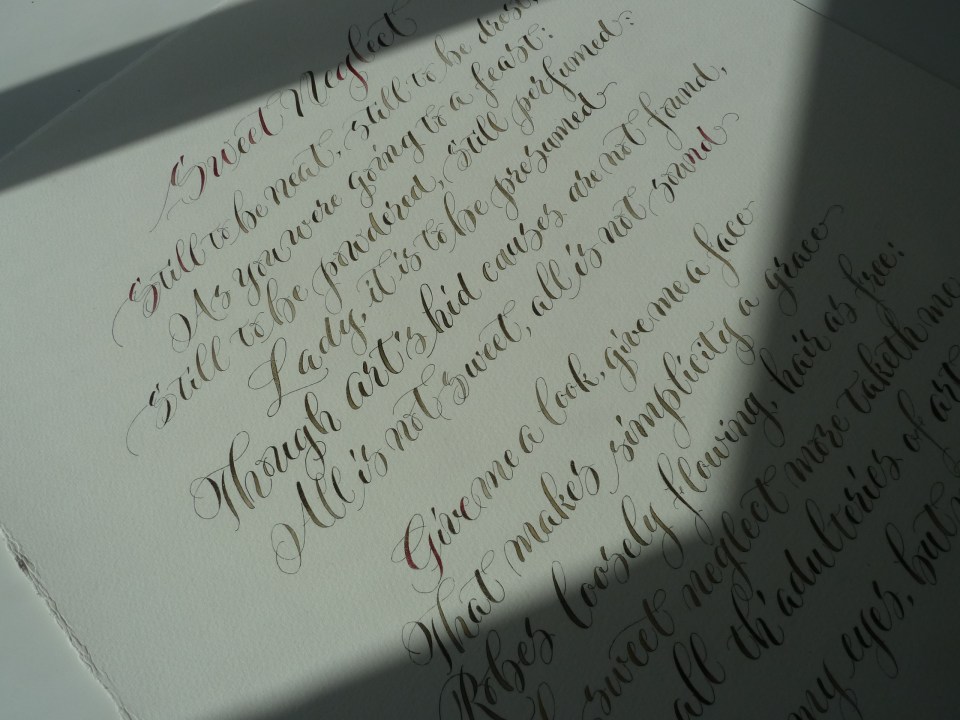 Sweet Neglect
Still to be neat, still to be drest,
As you were going to a feast:
Still to be powdered, still perfumed:
Lady, it is to be presumed
Though art's hid causes are not found,
All is not sweet, all is not sound
Give me a look, give me a face
That makes simplicity a grace
Robes loosely flowing, hair as free:
sweet neglect more taketh me
all th'adulteries of art
my eyes, but